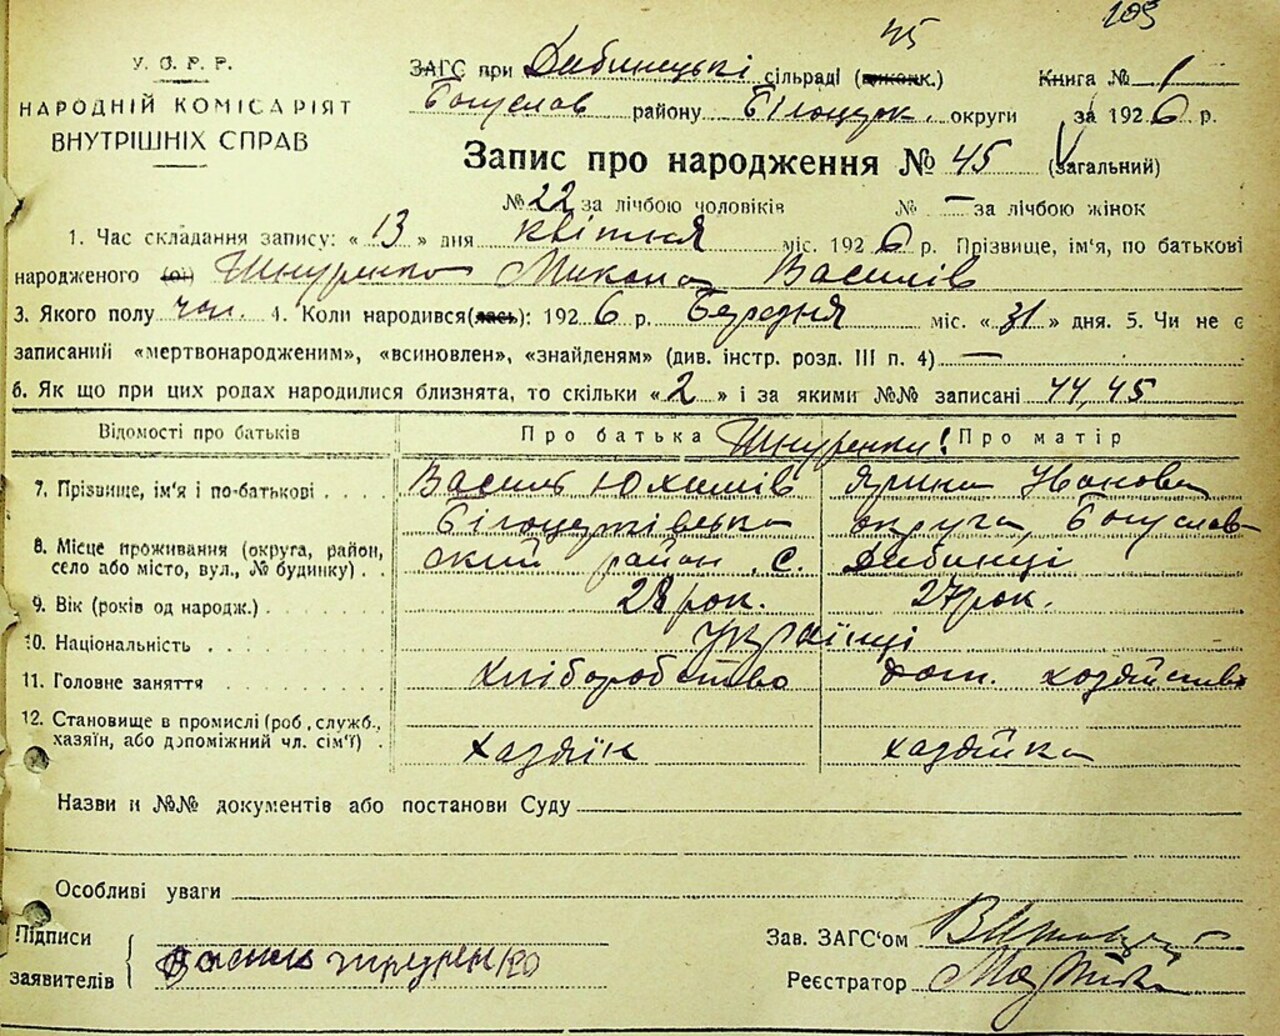 45 103
У. С. Р. Р.
НАРОДНІЙ КОМІСАРІЯТ
ВНУТРІШНІХ СПРАВ
ЗАГС при Дибинецькі сільраді (виконк.) Книга № 1
Богуслав району Білоцерк. округи за 1926 р.
Запис про народження № 45 (загальний)
№ 22 за лічбою чоловіків № – за лічбою жінок
1. Час складання запису: « 13 » дня квітня міс. 1926 р. Прізвище, ім'я, по батькові
народженого (ої) Шнуренко Микола Василів
3. Якого полу чол. 4. Коли народився(лась): 1926 р. Березня міс. « 31 » дня. 5. Чи не є
записаний «мертвонародженим», «всиновлен», «знайденям» (див. інстр. розд. III п. 4) —
6. Як що при цих родах народилися близнята, то скільки « 2 » і за якими №№ записані 44, 45
Відомості про батьків Про батька Шнуренки! Про матір
7. Прізвище, ім'я і по-батькові . . . . Василь Юхимів Ярина Іванова
Білоцерківська округа, Богуслав-
8. Місце проживання (округа, район,
село або місто, вул., № будинку) . . ский район с. Дибинці
9. Вік (років од народж.) . . . . . . . 28 рок. 27 рок.
10. Національність . . . . . . . . . . Українці
11. Головне заняття . . . . . . . . . Хліборобство дом. хозяйство
12. Становище в промислі (роб., служб.,
хазяїн, або допоміжний чл. сім'ї) . хазяїн хазяйка
Назви и №№ документів або постанови Суду
Особливі уваги
Підписи
заявителів Василь Шнуренко
Зав. ЗАГС'ом
Реєстратор